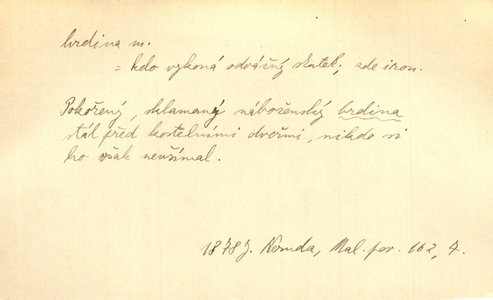 hrdina m.
= kdo vykoná odvážný skutek; zde iron.
Pokořený, sklamaný náboženský hrdina
stál před kostelními dveřmi, nikdo si
ho však nevšímal.
1878 J. Neruda, Mal. pov. 162, 7.